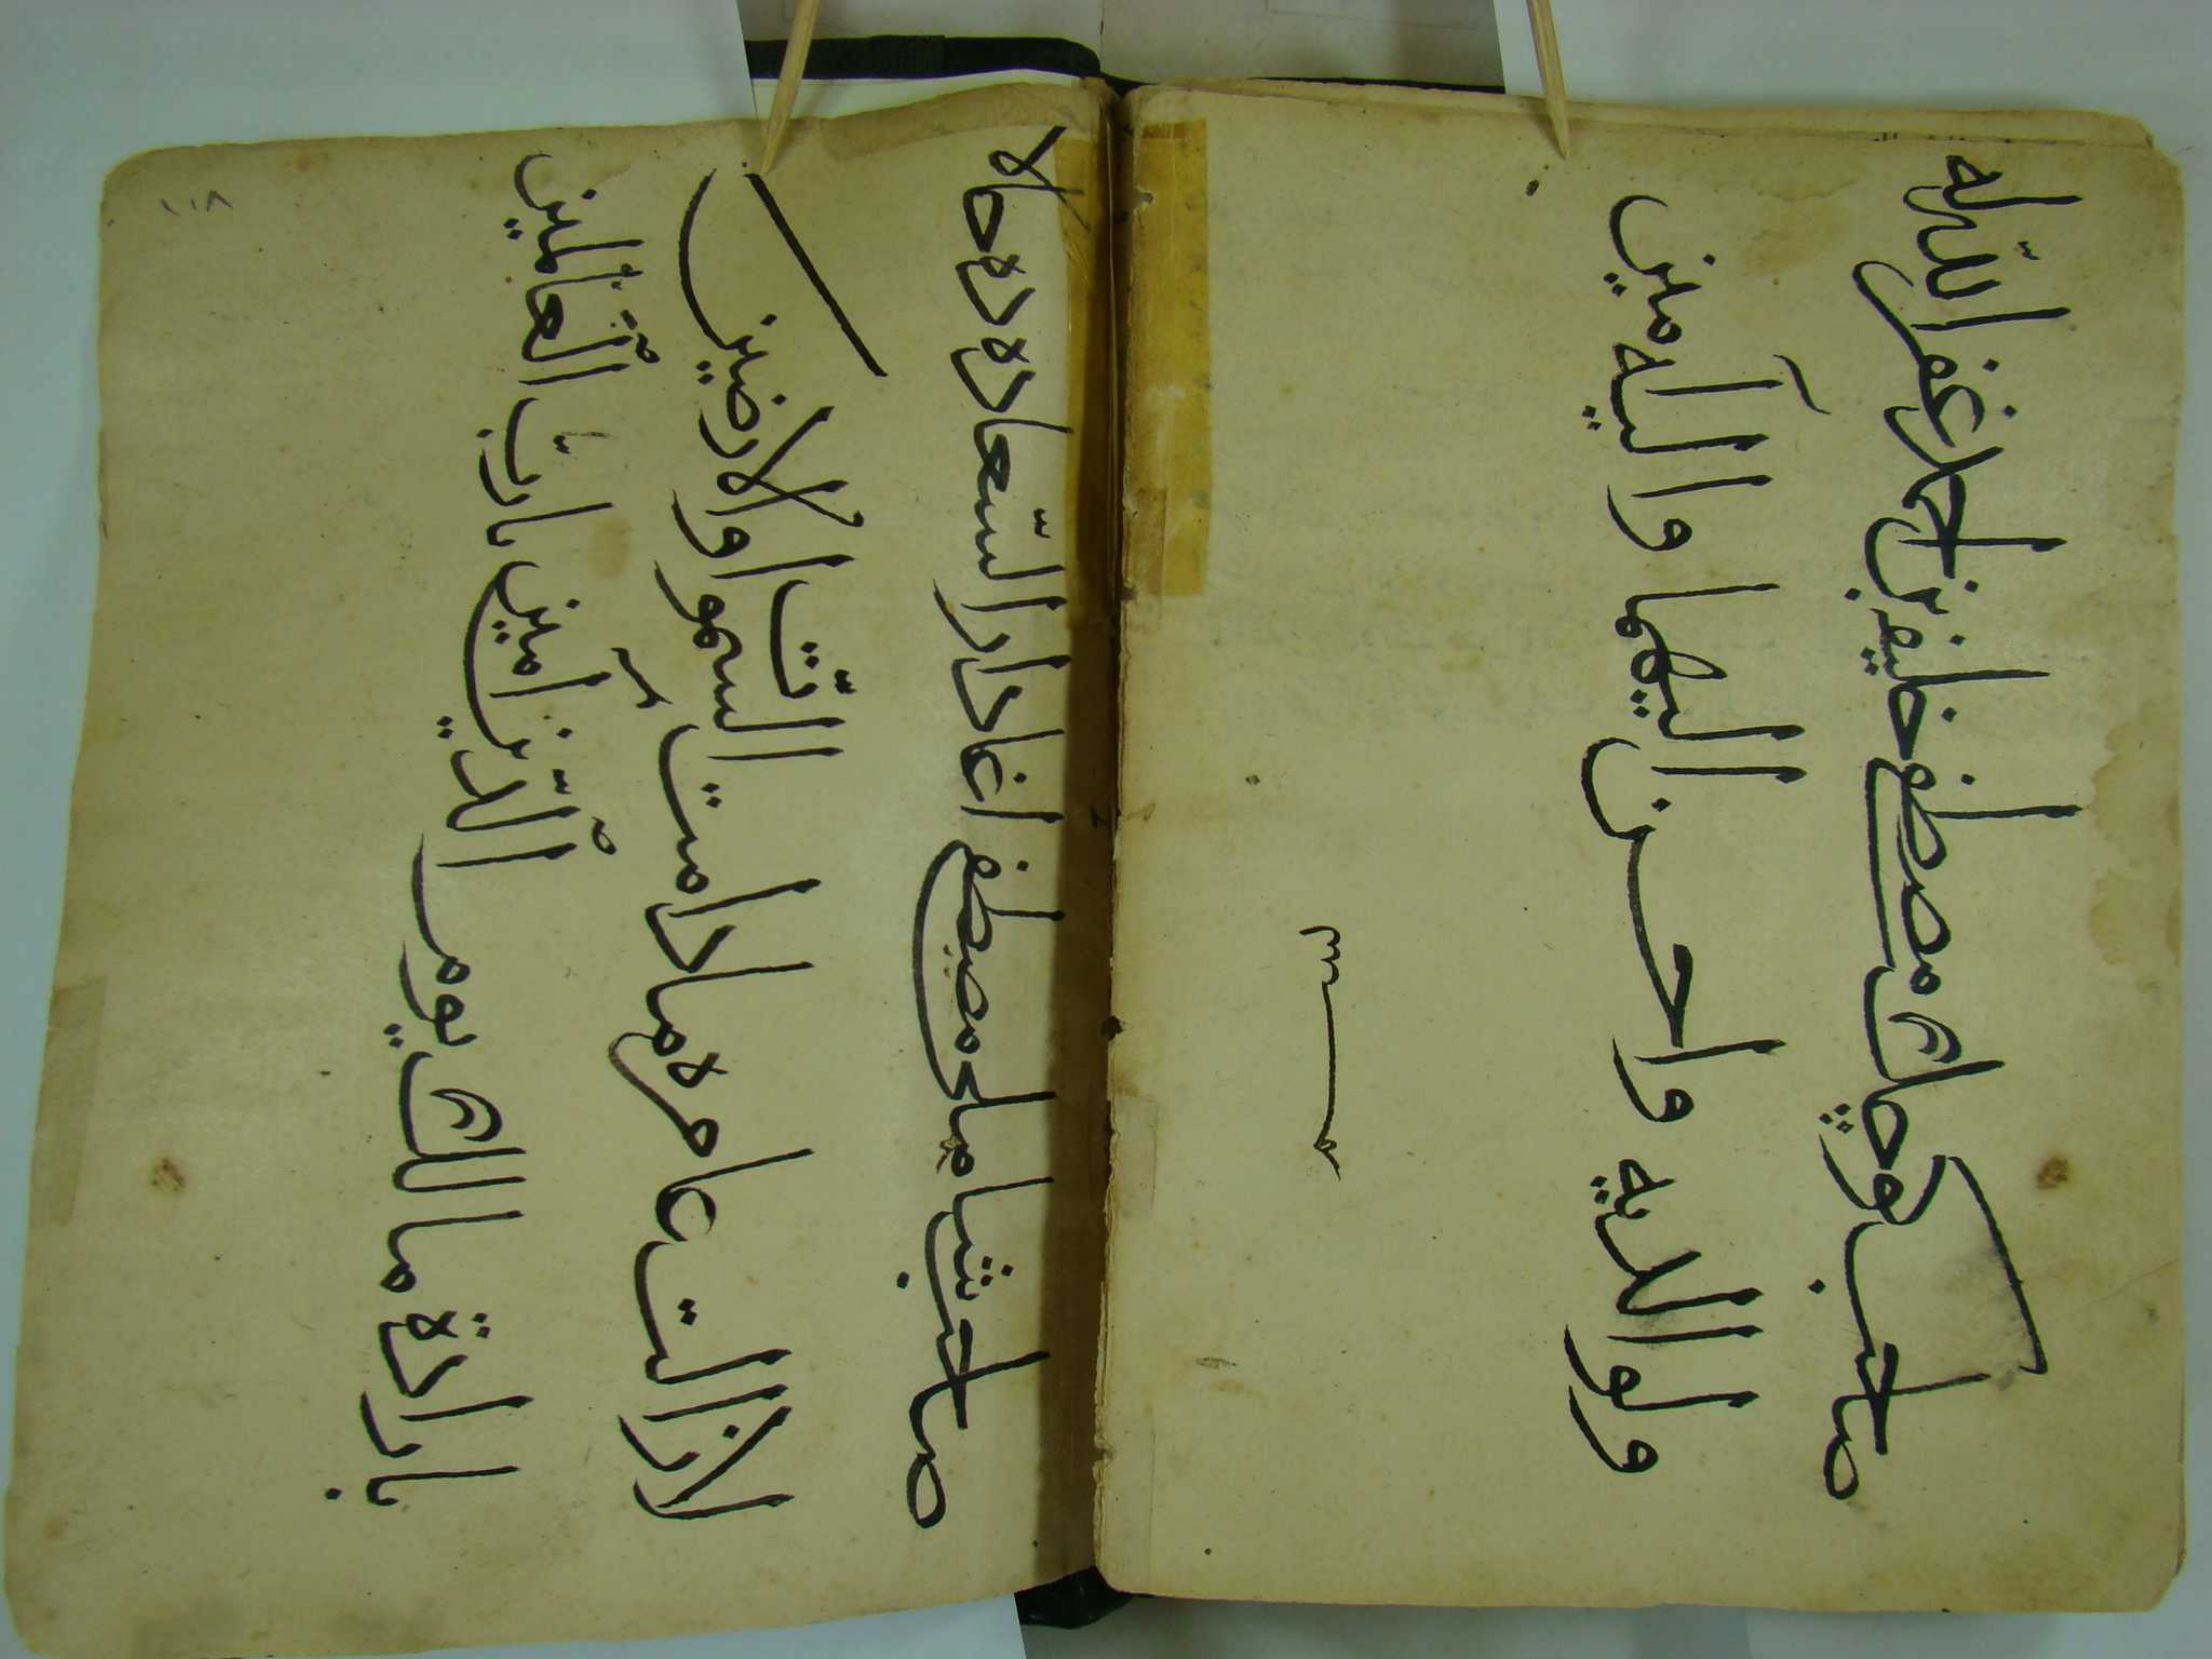 صاحب كوچك مصطفى خليفه بن احمد غفر الله له
ولوالديه واحسن اليهما واليه آمين
صاحب شاملى مصطفى اغا دار السّعاده ده حالا
لازالت عامره مادامت السّموات والارضين
بارادة مالك يوم الدّين آمين يا ربّ العالمين
١١٨